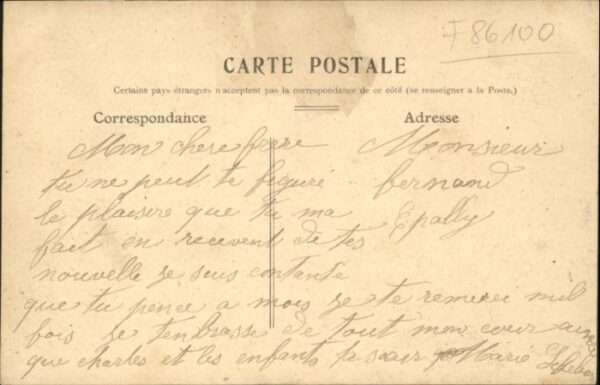 F 86100
CARTE POSTALE
Certains pays étrangers n'acceptent pas la correspondance de ce côté (se renseigner à la Poste.)
Correspondance
Adresse
Mon chere frere
tu ne peut te figuré
le plaisire que tu ma
fait en recevent de tes
nouvelle je suis contente
que tu pence a mois je te remerci mil
fois je tenbrasse de tout mon cœur ainsi
que charles et les enfants ta sœur Marie
Monsieur
fernand
Epally